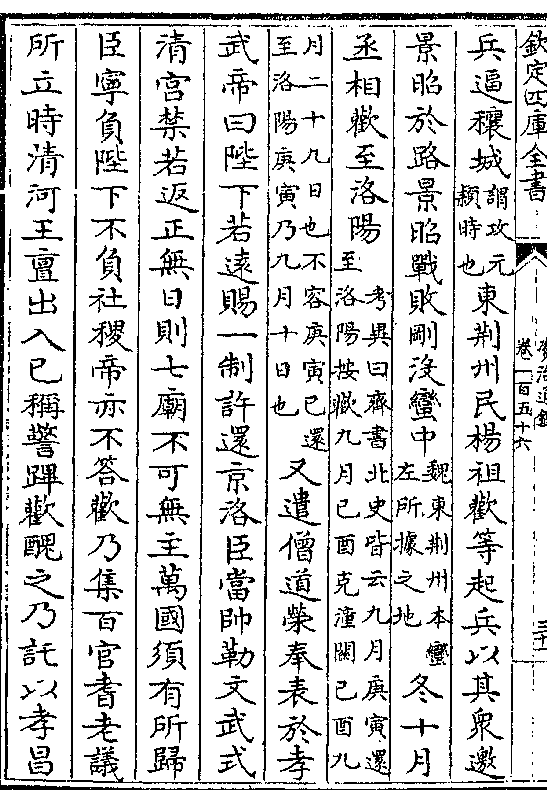 欽定四庫全書
資治通鑑
卷一百五十六
三十一
兵逼穰城
謂攻元
穎時也
東荆州民楊祖歡等起兵以其衆邀
景昭於路景昭戰敗剛沒蠻中
魏東荆州本蠻
左所據之地
冬十月
丞相歡至洛陽
考異曰齊書北史皆云九月庚寅還
至洛陽按歡九月己酉克潼關己酉九
月二十九日也不容庚寅已還
至洛陽庚寅乃九月十日也
又遣僧道榮奉表於孝
武帝曰陛下若遠賜一制許還京洛臣當帥勒文武式
清宫禁若返正無日則七廟不可無主萬國須有所歸
臣寧負陛下不負社稷帝亦不答歡乃集百官耆老議
所立時清河王亶出入已稱警蹕歡醜之乃託以孝昌